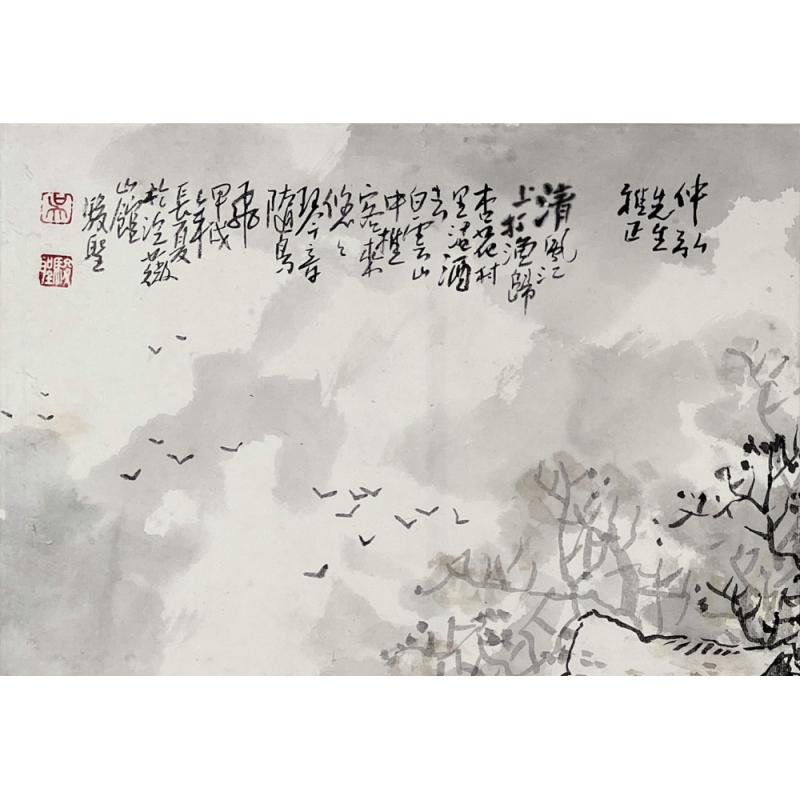 仲弘
先生
雅正
清風江
上打漁歸
杏花村
里沽酒
去
白雲山
中樵
客來
悠々
琴音
隨鳥
飛
甲戌
年
長夏
於冷薇
山館
駿聖
吳